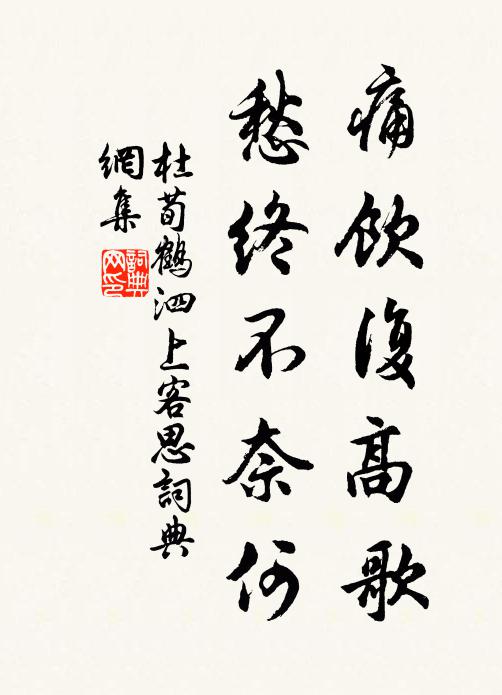 痛飲復高歌
愁終不奈何
杜荀鶴泗上客思詞典
網集
詞典
网印